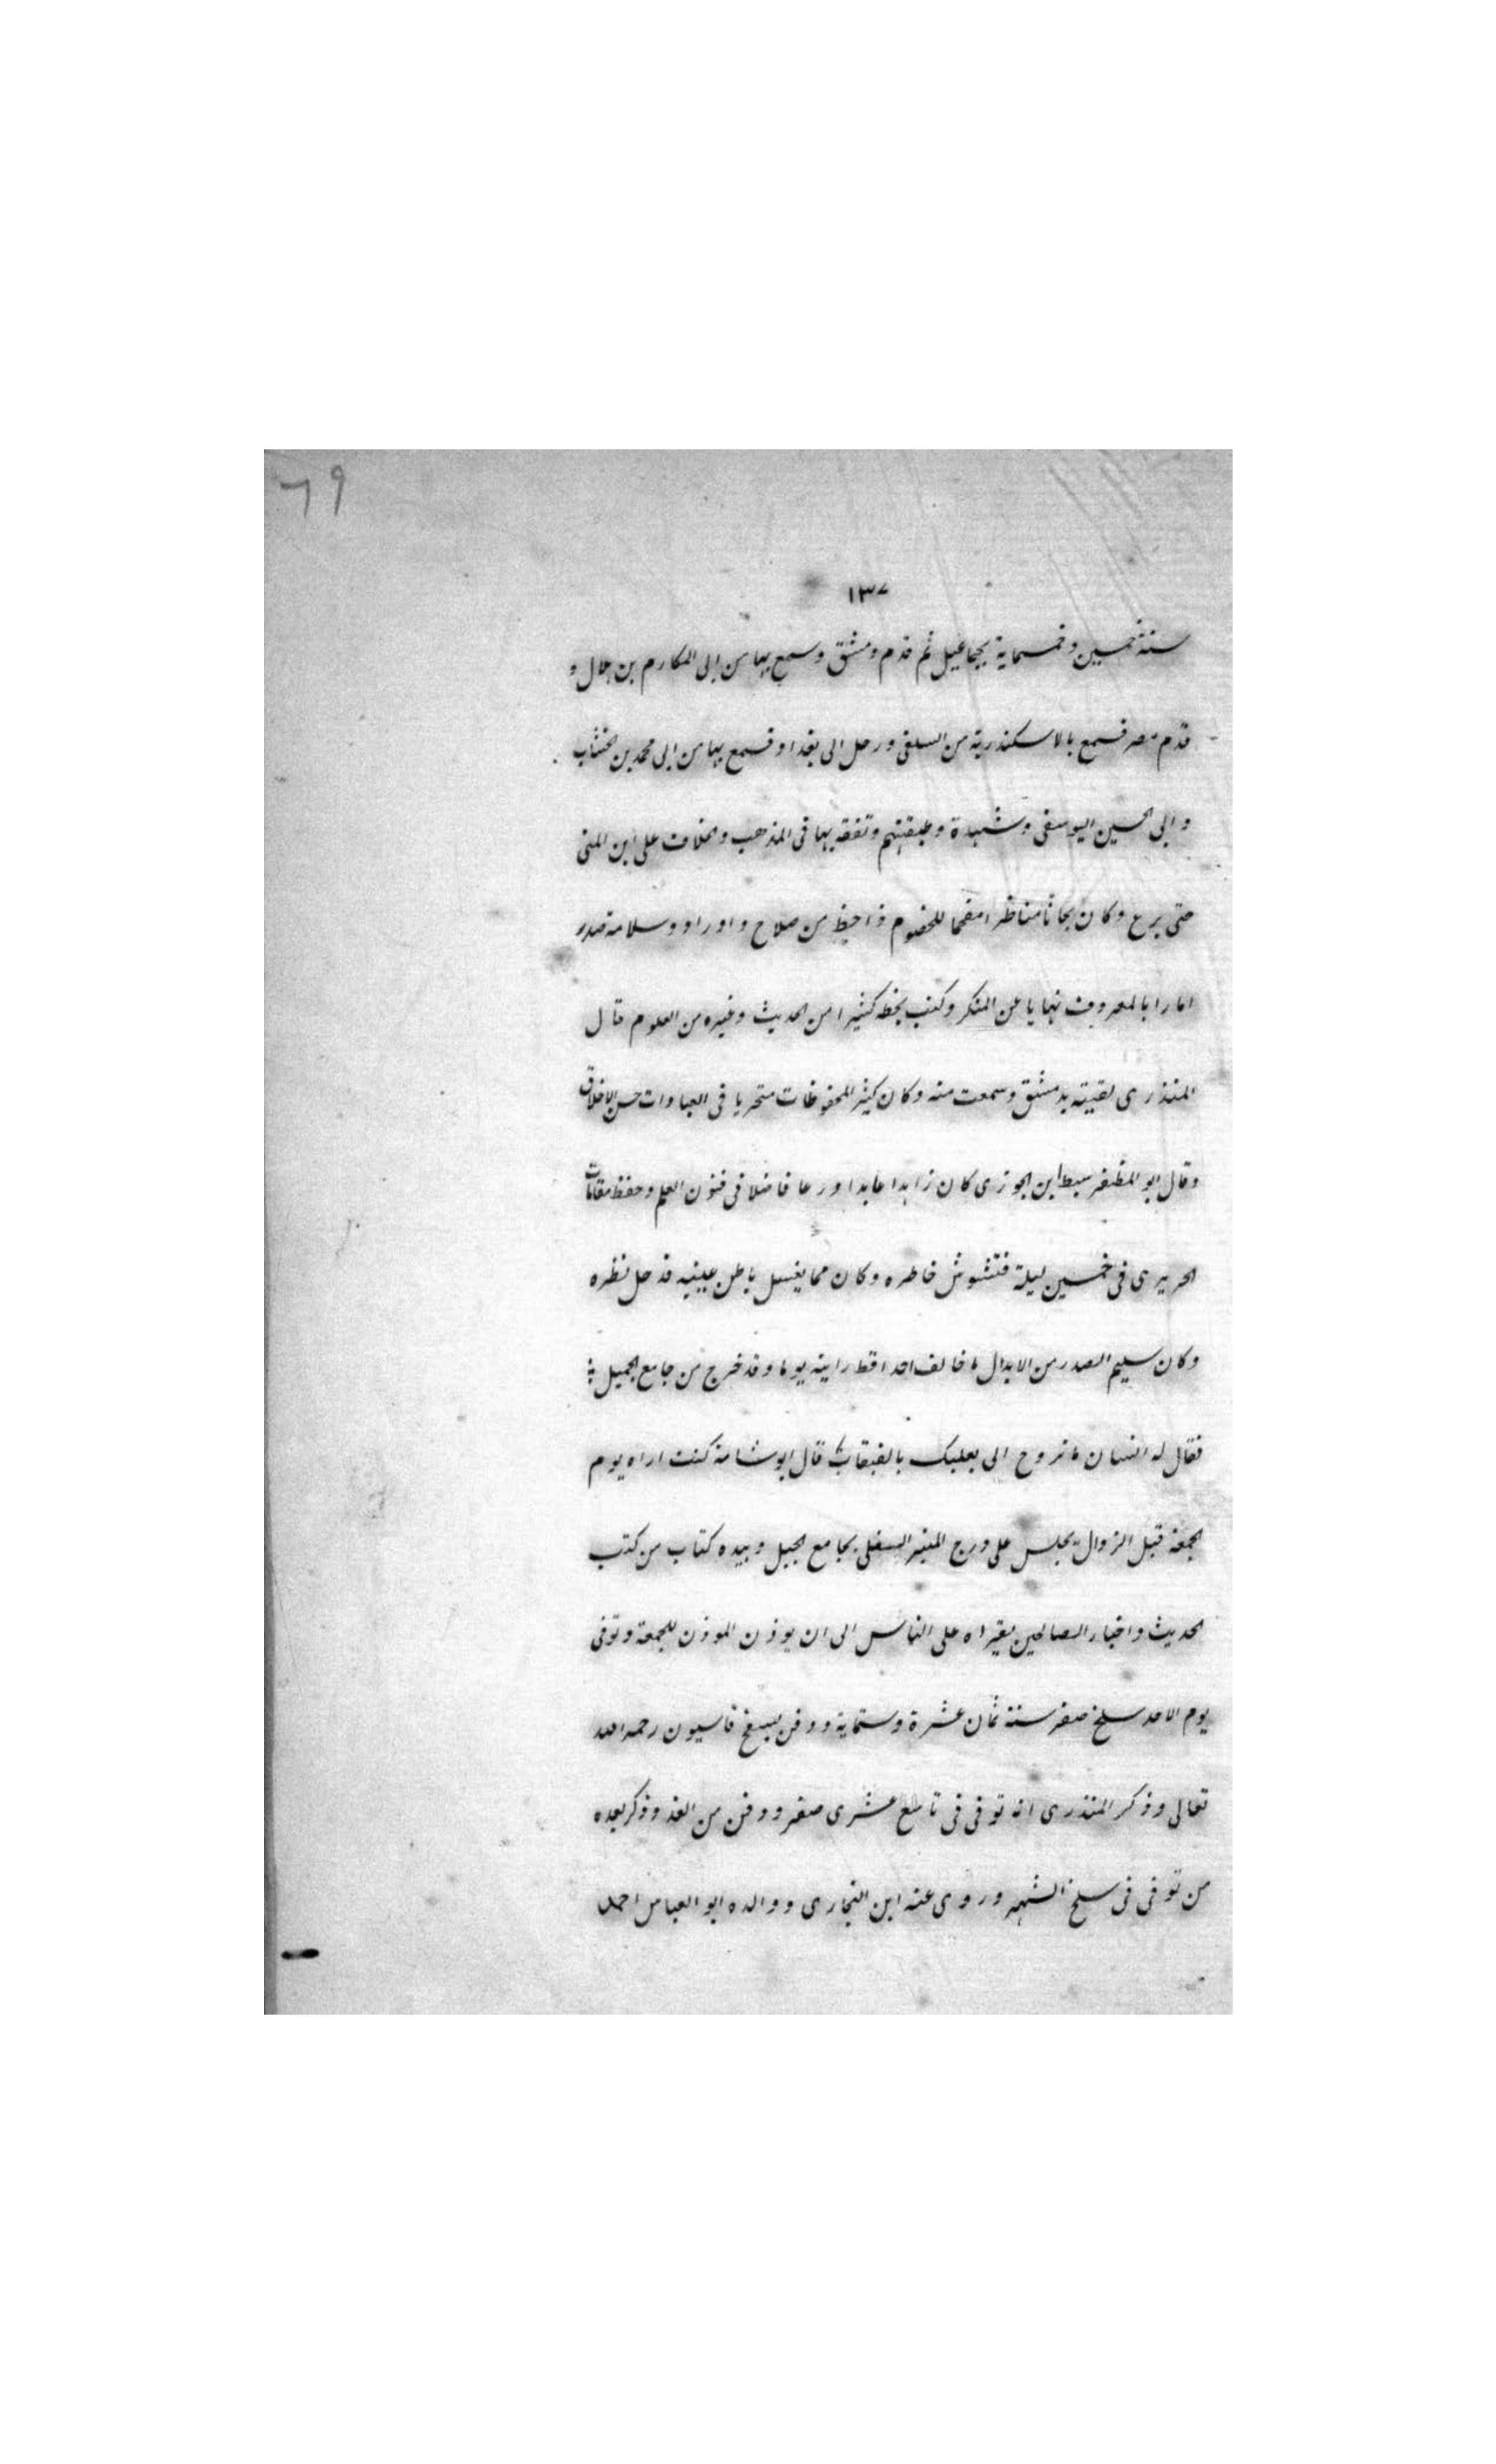 ٦٩
١٣٧
سنة خمسين وخمسماية بجماعيل ثم قدم دمشق وسمع بها من ابى المكارم بن هلال و
قدم مصر فسمع بالاسكندرية من السلفى ورحل الى بغداد فسمع بها من ابى محمد بن الخشاب
وابى الحسين اليوسفى وشهدة وطبقتهم وتفقه بها فى المذهب والخلاف على ابن المنى
حتى برع وكان بحاثا مناظرا مفحما للخصوم ذا حظ من صلاح واوراد وسلامة صدر
امارا بالمعروف نهايا عن المنكر وكتب بخطه كثيرا من الحديث وغيره من العلوم قال
المنذرى لقيته بدمشق وسمعت منه وكان كثير المحفوظات متحريا فى العبادات حسن الاخلاق
وقال ابو المظفر سبط ابن الجوزى كان زاهدا عابدا ورعا فاضلا فى فنون العلم وحفظ مقامات
الحريرى فى خمسين ليلة فتشوش خاطره وكان مما يغسل باطن عينيه قد حل نظره
وكان سليم الصدر من الابدال ما خالف احدا قط راينه يوما وقد خرج من جامع الجميل
فقال له انسان ما تروح الى بعلبك بالقبقاب قال ابو شامة كنت اراه يوم
الجمعة قبل الزوال يجلس على درج المنبر السفلى بجامع الجبل وبيده كتاب من كتب
الحديث واخبار الصالحين يقراه على الناس الى ان يوذن الموذن للجمعة وتوفى
يوم الاحد سلخ صفر سنة ثمان عشرة وستماية ودفن بسفح قاسيون رحمه الله
تعالى وذكر المنذرى انه توفى فى تاسع عشرى صفر ودفن من الغد وذكر بعده
من توفى فى سلخ الشهر وروى عنه ابن النجارى ووالده ابو العباس احمد